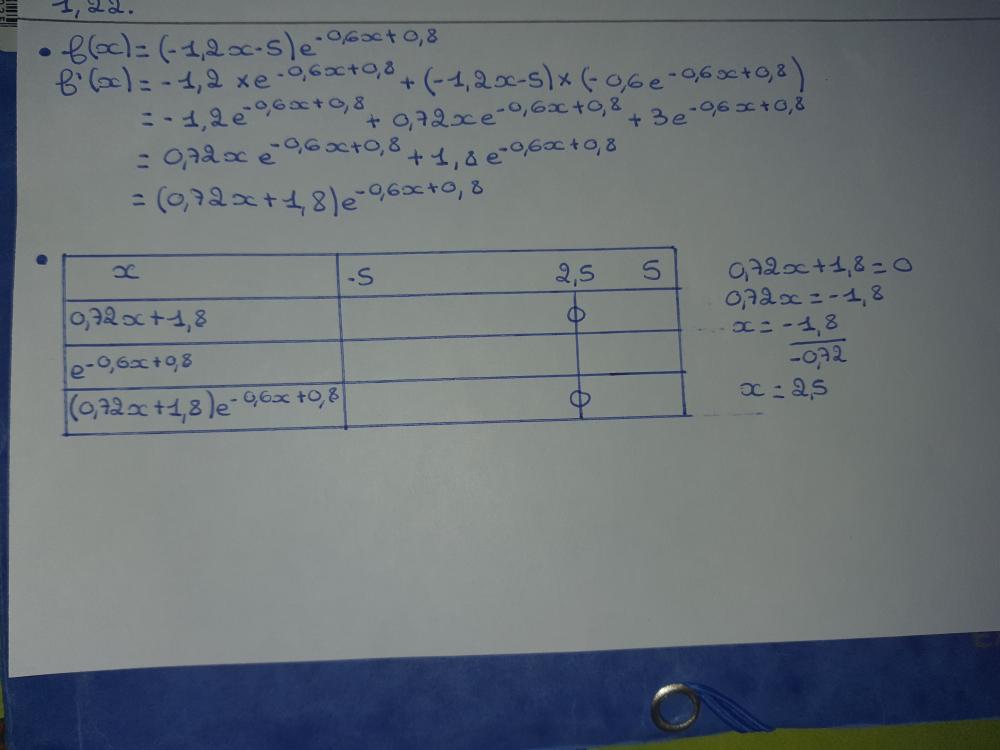 1,22.
• f(x) = (-1,2x-5)e^-0,6x+0,8
f'(x) = -1,2 × e^-0,6x+0,8 + (-1,2x-5) × (-0,6e^-0,6x+0,8)
= -1,2e^-0,6x+0,8 + 0,72xe^-0,6x+0,8 + 3e^-0,6x+0,8
= 0,72x e^-0,6x+0,8 + 1,8 e^-0,6x+0,8
= (0,72x+1,8)e^-0,6x+0,8
• x -5 2,5 5
0,72x+1,8 0
e^-0,6x+0,8
(0,72x+1,8)e^-0,6x+0,8 0
0,72x+1,8=0
0,72x=-1,8
x = -1,8
-0,72
x = 2,5